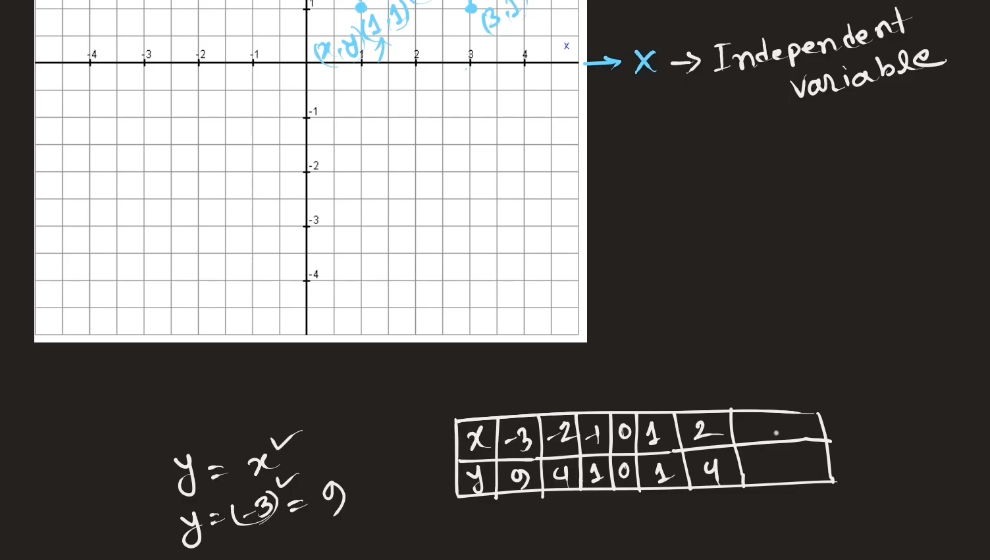 1
(x,y) (1,1)
(3,1
-4 -3 -2 -1 1 2 3 4 x
→ X → Independent variable
-1
-2
-3
-4
y = x²
y = (-3)² = 9
x -3 -2 -1 0 1 2
y 9 4 1 0 1 4